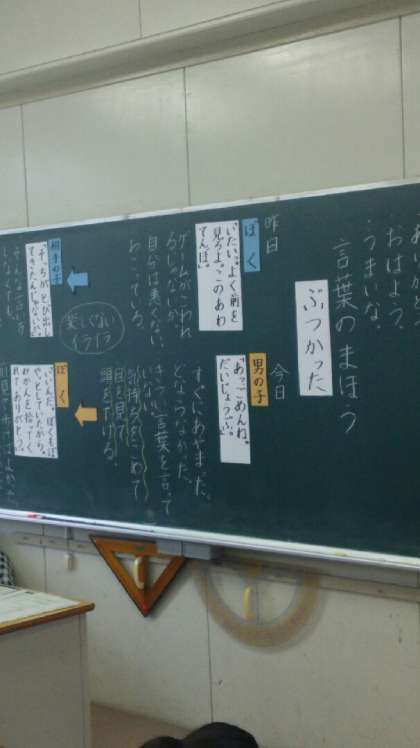 おはよう。
うまいな。
言葉のまほう
ぶつかった
昨日
ぼく
「いたい。よく前を
見ろよ。このあわ
てんぼ。」
ゲームがこわれ
るじゃないか。
自分は悪くない。
おこっている。
楽しくない
イライラ
相手の子
「そっちがとび出し
てきたんじゃないか。」
今日
男の子
「あっごめんね。
だいじょうぶ。」
すぐにあやまった。
どならなかった。
言葉を言って
いない。
気持ちをこめて
目を見て
頭を下げる。
ぼく
「いいんだ。ぼくもぼ
やっとしていたから。
みかんを拾ってく
れてありがとう。」